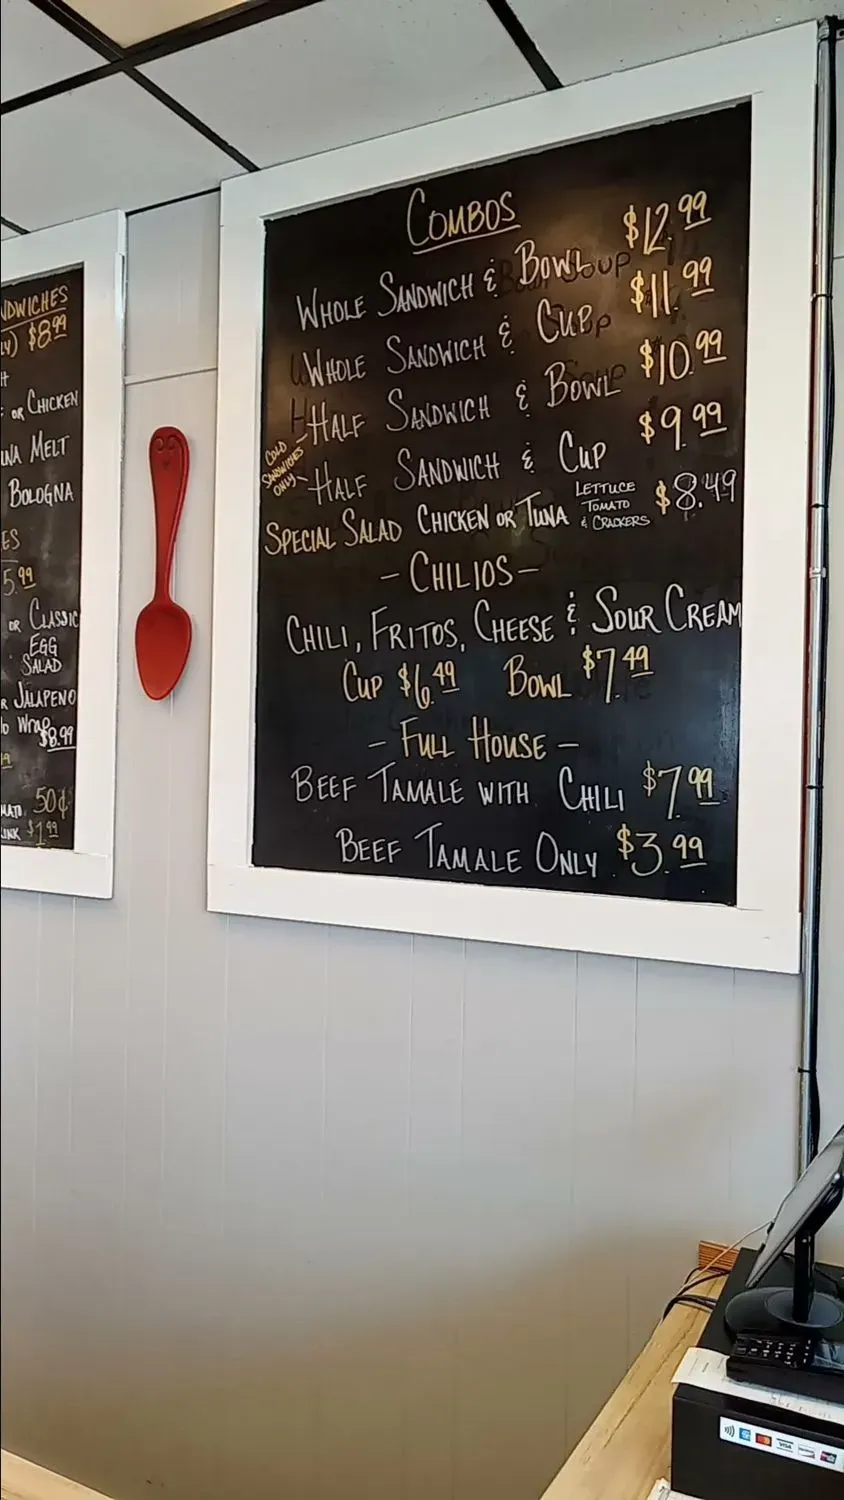 NDWICHES
$8.99
OR CHICKEN
MELT
BOLOGNA
ES
5.99
OR CLASSIC
EGG
SALAD
R JALAPENO
WRAP
$8.99
50¢
$1.99
COMBOS
WHOLE SANDWICH & BOWL $12.99
WHOLE SANDWICH & CUP $11.99
HALF SANDWICH & BOWL $10.99
COLD
SANDWICHES
ONLY
HALF SANDWICH & CUP $9.99
SPECIAL SALAD CHICKEN OR TUNA LETTUCE TOMATO & CRACKERS $8.49
- CHILIOS -
CHILI, FRITOS, CHEESE & SOUR CREAM
CUP $6.49 BOWL $7.49
- FULL HOUSE -
BEEF TAMALE WITH CHILI $7.99
BEEF TAMALE ONLY $3.99
VISA